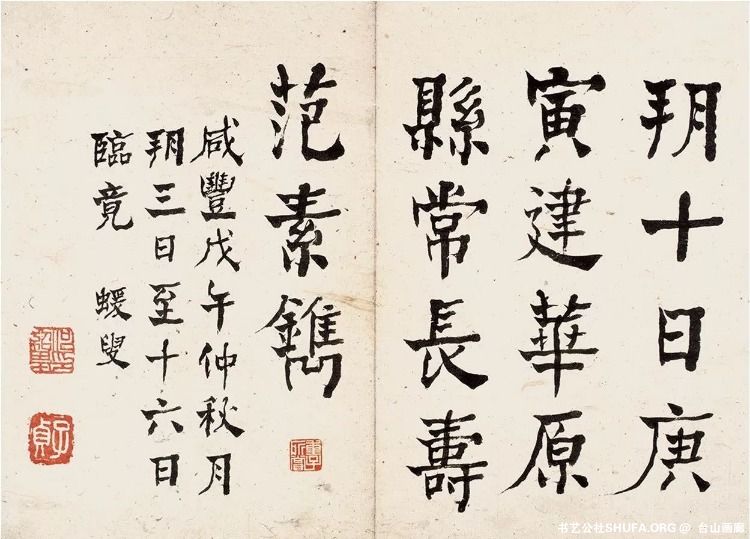 朔十日庚
寅建華原
縣常長壽
范素鐫
咸豐戊午仲秋月
朔三日至十六日
臨竟 蝯叟
子貞
书艺公社SHUFA.ORG @ 台山画廊